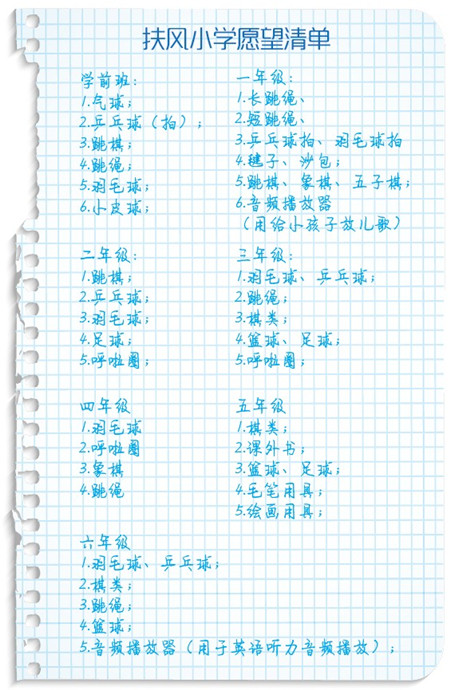 扶风小学愿望清单
学前班：
1.气球；
2.乒乓球（拍）；
3.跳棋；
4.跳绳；
5.羽毛球；
6.小皮球；
一年级：
1.长跳绳、
2.短跳绳、
3.乒乓球拍、羽毛球拍
4.毽子、沙包；
5.跳棋、象棋、五子棋；
6.音频播放器
（用给小孩子放儿歌）
二年级：
1.跳棋；
2.乒乓球；
3.羽毛球；
4.足球；
5.呼啦圈；
三年级：
1.羽毛球、乒乓球；
2.跳绳；
3.棋类；
4.篮球、足球；
5.呼啦圈；
四年级
1.羽毛球
2.呼啦圈
3.象棋
4.跳绳
五年级
1.棋类；
2.课外书；
3.篮球、足球；
4.毛笔用具；
5.绘画用具；
六年级
1.羽毛球、乒乓球；
2.棋类；
3.跳绳；
4.篮球；
5.音频播放器（用于英语听力音频播放）；